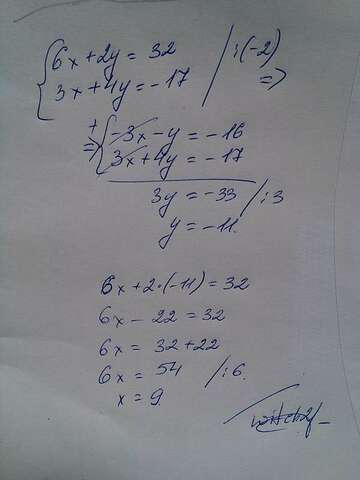 6x+2y = 32 /:(-2)
3x+4y = -17 =>
+
=> -3x-y = -16
3x+4y = -17
3y = -33 /:3
y = -11.
6x+2·(-11) = 32
6x - 22 = 32
6x = 32+22
6x = 54 /:6.
x = 9.